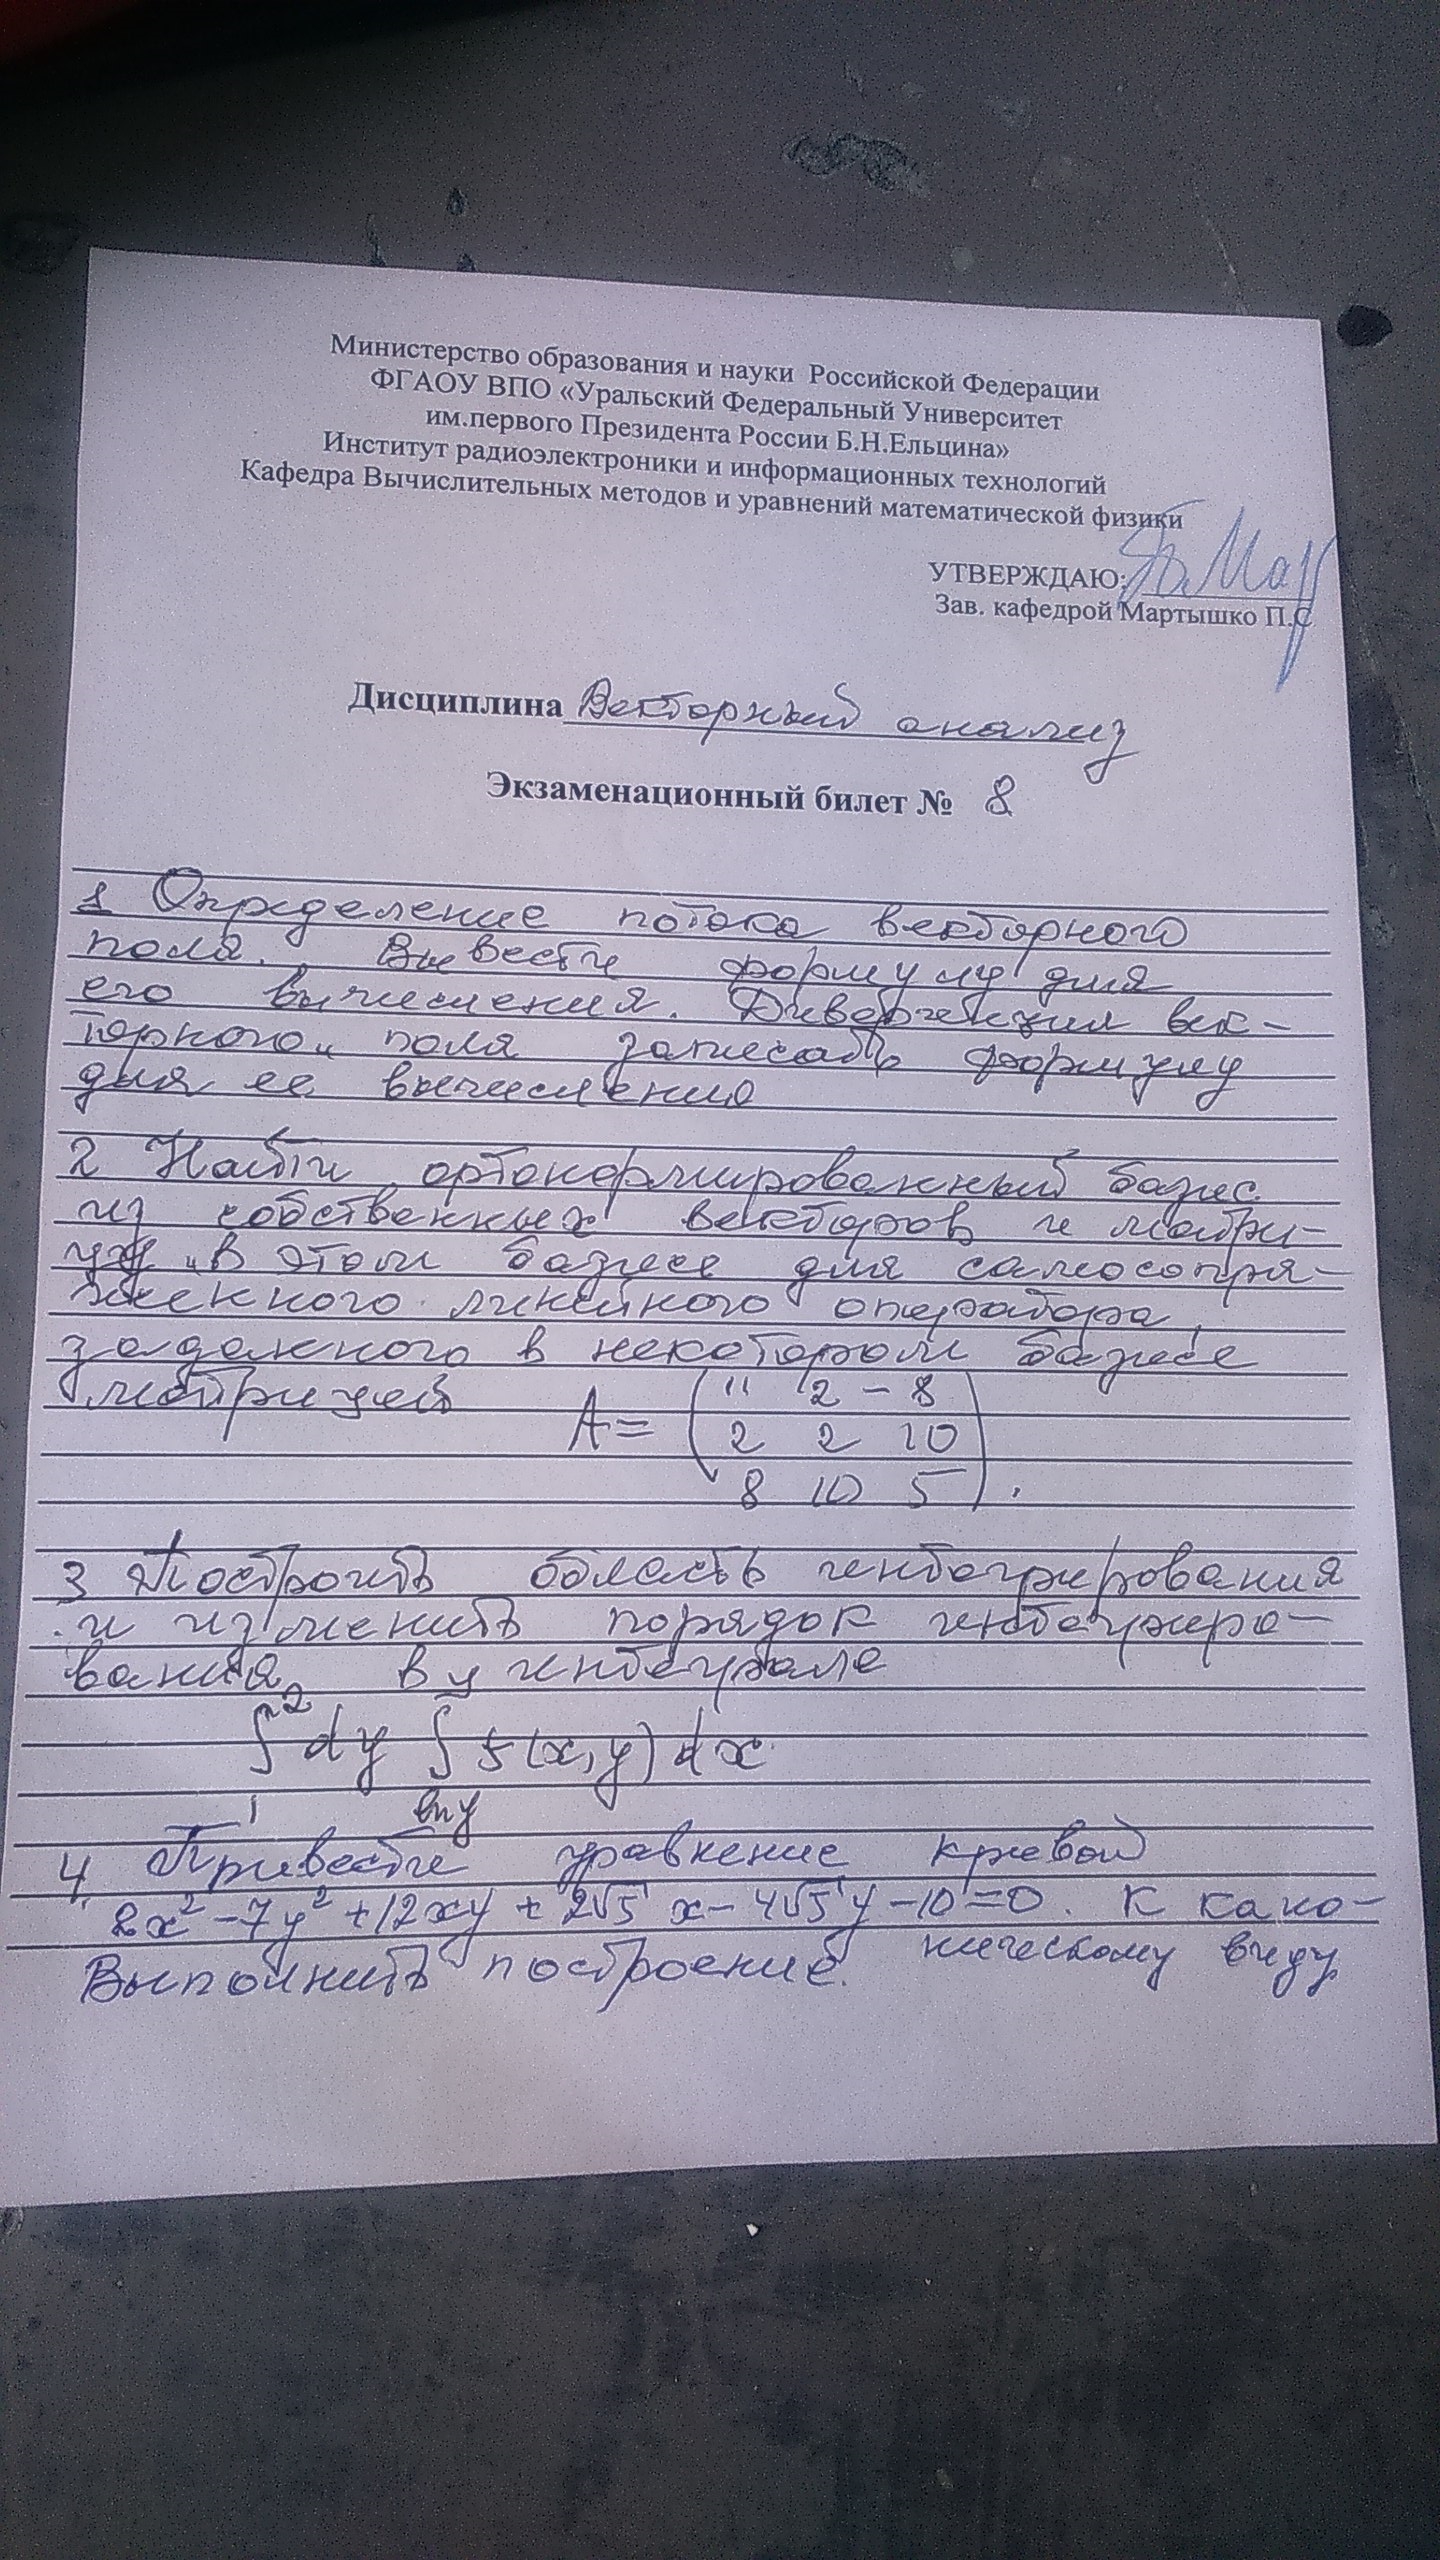 Министерство образования и науки Российской Федерации
ФГАОУ ВПО «Уральский Федеральный Университет
им.первого Президента России Б.Н.Ельцина»
Институт радиоэлектроники и информационных технологий
Кафедра Вычислительных методов и уравнений математической физики
УТВЕРЖДАЮ:
Зав. кафедрой Мартышко П.С
Дисциплина Векторный анализ
Экзаменационный билет № 8
1 Определение потока векторного
поля. Вывести формулу для
его вычисления. Дивергенция век-
торного поля записать формулу
для ее вычисления
2 Найти ортонормированный базис
из собственных векторов и матри-
цу в этом базисе для самосопря-
женного линейного оператора,
заданного в некотором базисе
матрицей A = ( 11 2 -8
2 2 10
8 10 5 ).
3 Построить область интегрирования
и изменить порядок интегриро-
вания в интеграле
∫₁² dy ∫ₗₙ ᵧʸ f(x,y) dx
4 Привести уравнение кривой
2x² - 7y² + 12xy + 2√5 x - 4√5 y - 10 = 0. к кано-
ническому виду
Выполнить построение.